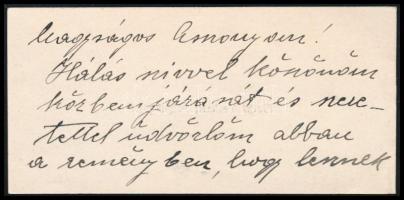 Nagyságos Asszonyom!
Hálás szivvel köszönöm
közbenjárását és szere-
tettel üdvözlöm abban
a reményben, hogy lesznek